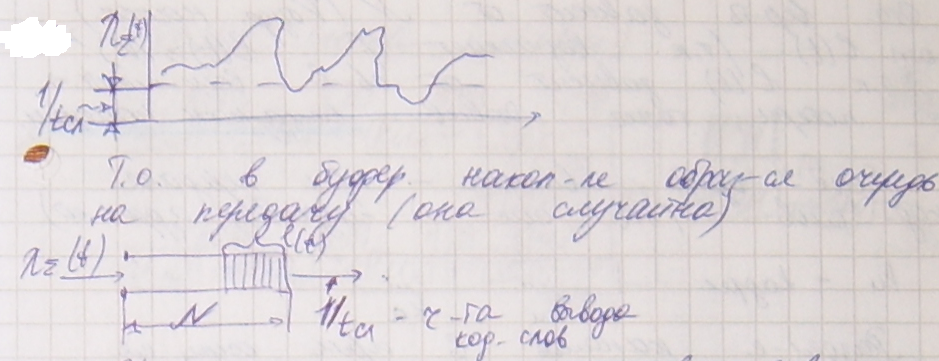 λΣ(t)
1/tсл
Т.о. в буфер. накоп-ле образ-ся очередь
на передачу (она случайна)
l(t)
λΣ(t)
N
1/tсл = ч-та вывода
код. слов